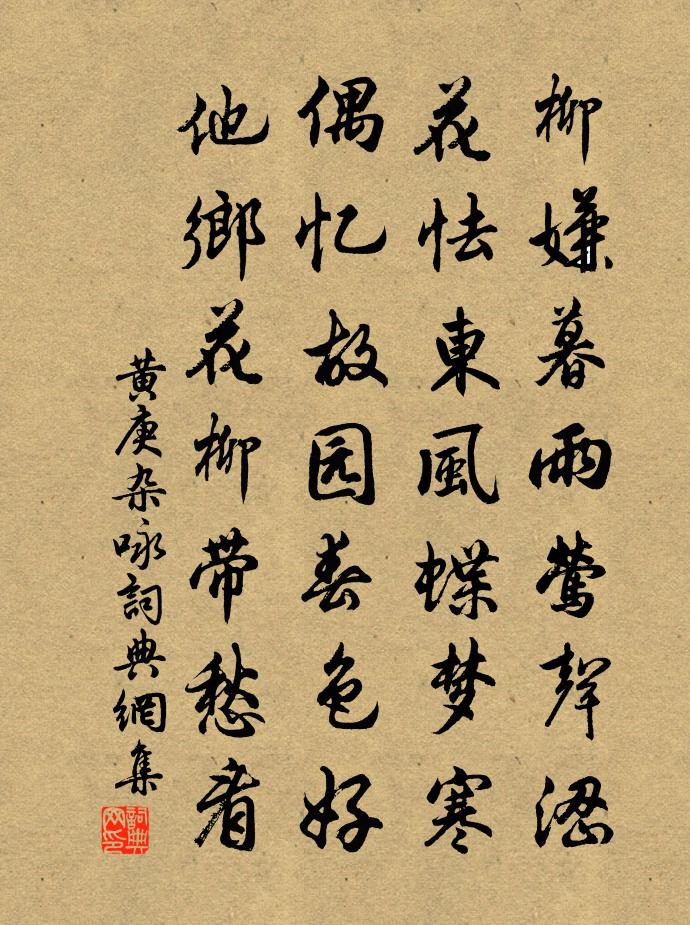 柳嫌暮雨莺聲涩
花怯東風蝶梦寒
偶忆故园春色好
他鄉花柳带愁看
黄庚杂咏詞典網集
詞典网印